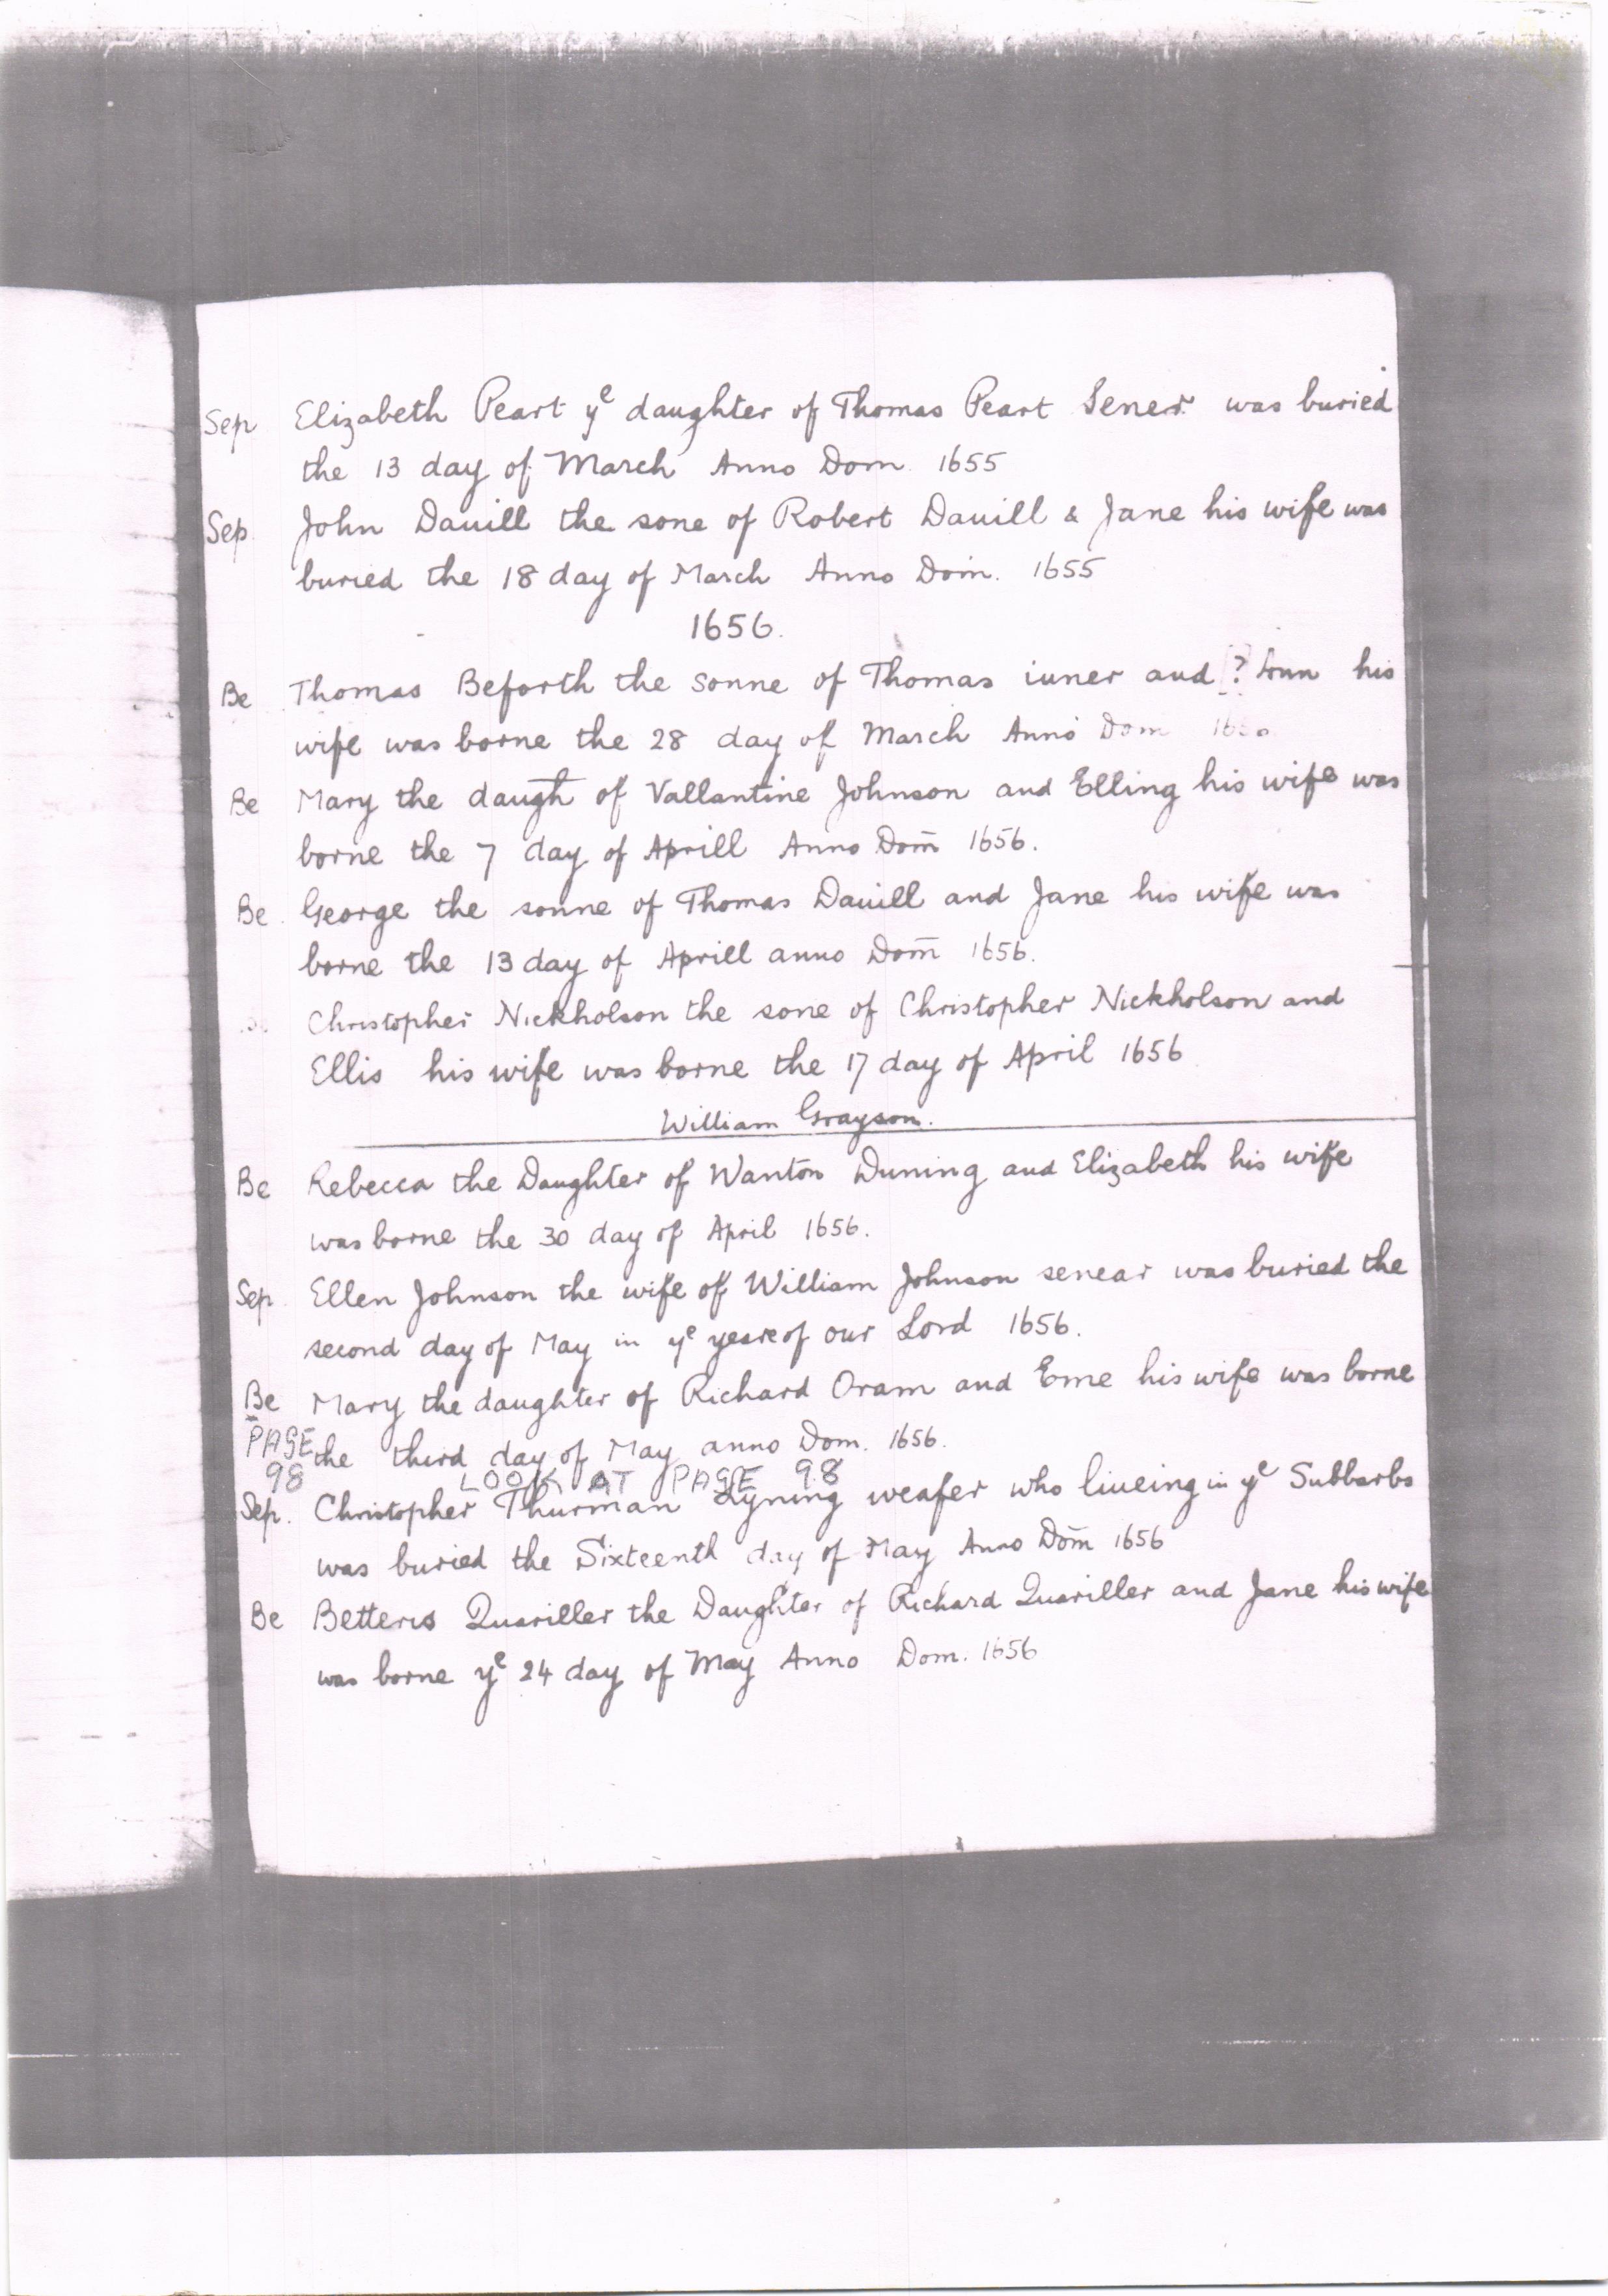 Sep Elizabeth Peart yᵉ daughter of Thomas Peart Sener was buried
the 13 day of March Anno Dom 1655
Sep John Dauill the sone of Robert Dauill & Jane his wife was
buried the 18 day of March Anno Dom. 1655
1656.
Be Thomas Beforth the sonne of Thomas iuner and ? his
wife was borne the 28 day of March Anno Dom
Be Mary the daugh̄t of Vallantine Johnson and Elling his wife was
borne the 7 day of Aprill Anno Dom̄ 1656.
Be George the sonne of Thomas Dauill and Jane his wife was
borne the 13 day of Aprill anno Dom̄ 1656.
Christopher Nickholson the sone of Christopher Nickholson and
Ellis his wife was borne the 17 day of April 1656
William Grayson.
Be Rebecca the Daughter of Wanton Duning and Elizabeth his wife
was borne the 30 day of April 1656.
Sep Ellen Johnson the wife of William Johnson senear was buried the
second day of May in yᵉ yeare of our Lord 1656.
Be Mary the daughter of Richard Oram and Eme his wife was borne
PAGE the third day of May anno Dom. 1656.
98 LOOK AT PAGE 98
Sep. Christopher Thurman Lyning weafer who liueing in yᵉ Subbarbs
was buried the Sixteenth day of May Anno Dom̄ 1656
Be Betteris Quariller the Daughter of Richard Quariller and Jane his wife
was borne yᵉ 24 day of May Anno Dom. 1656